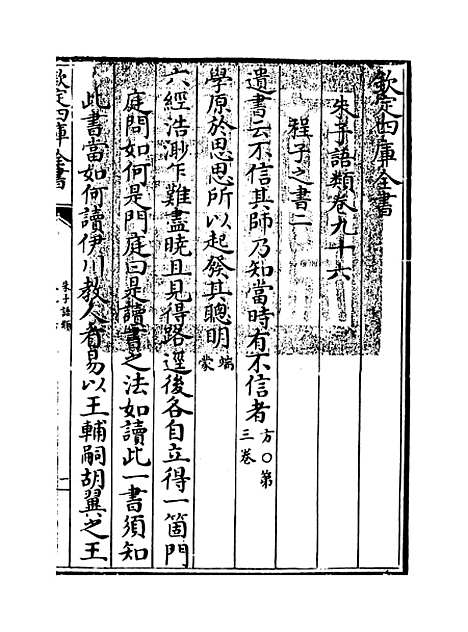 欽定四庫全書
朱子語類卷九十六
程子之書二
遺書云不信其師乃知當時有不信者方○第三卷
學原於思思所以起發其聰明端蒙
六經浩渺乍難盡曉且見得路逕後各自立得一箇門
庭問如何是門庭曰是讀書之法如讀此一書須知
此書當如何讀伊川教人看易以王輔嗣胡翼之王
欽定四庫全書
朱子語類
一